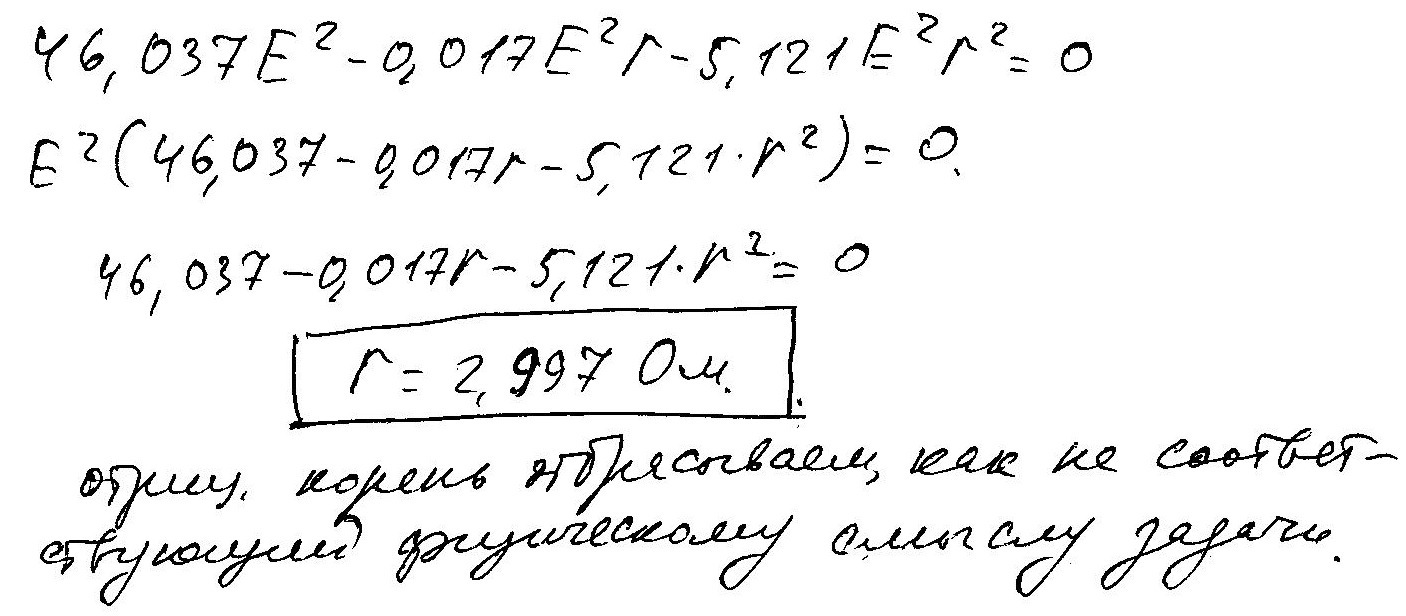 46,037E² - 0,017E²r - 5,121E²r² = 0
E²(46,037 - 0,017r - 5,121·r²) = 0.
46,037 - 0,017r - 5,121·r² = 0
r = 2,997 Ом.
отриц. корень отбрасываем, как не соответ-
ствующий физическому смыслу задачи.